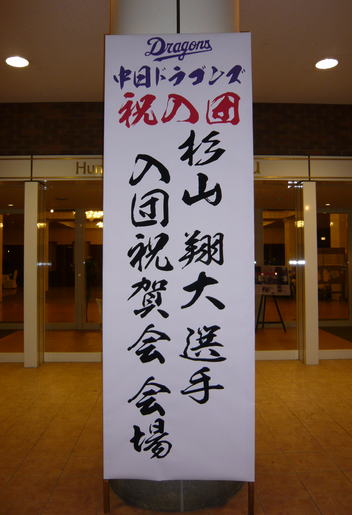 Dragons
中日ドラゴンズ
祝入団
杉山 翔大 選手
入団祝賀会 会場
Hu